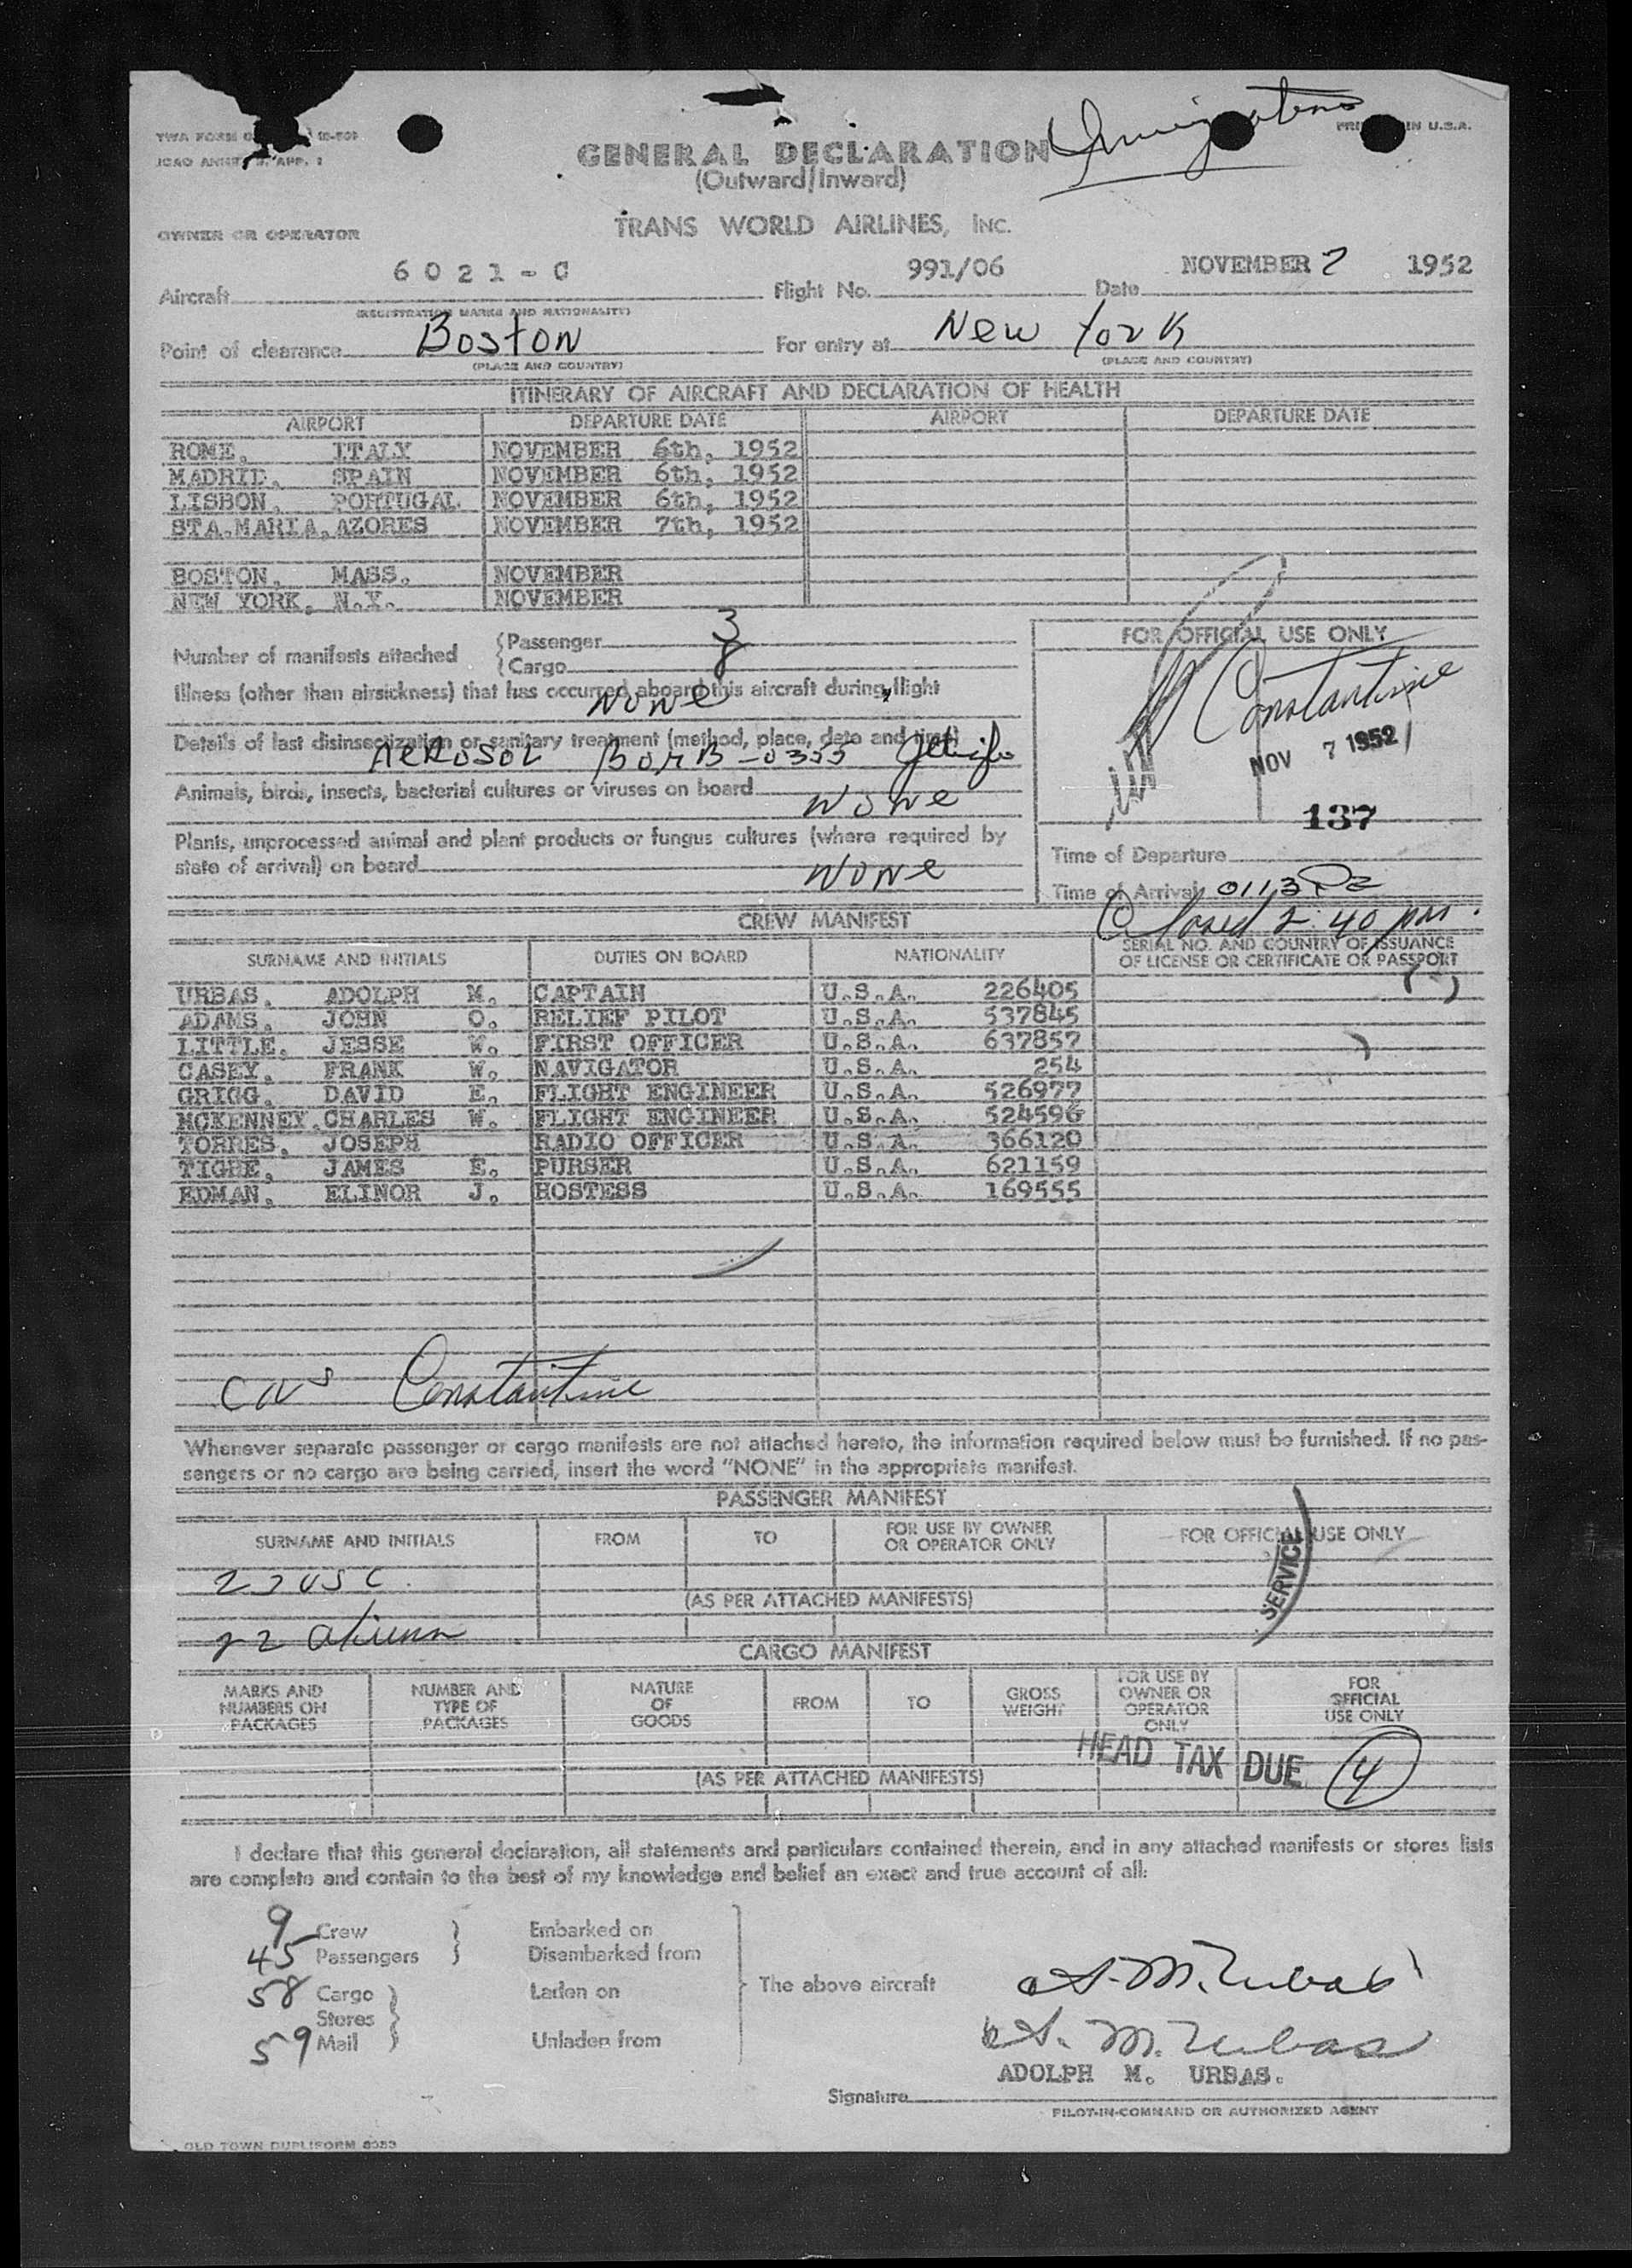 TWA FORM
ICAO ANNEX 9, APP. 1
PRINTED IN U.S.A.
Immigration
GENERAL DECLARATION
(Outward/Inward)
OWNER OR OPERATOR
TRANS WORLD AIRLINES, Inc.
Aircraft 6021-C Flight No. 991/06 Date NOVEMBER 7 1952
(REGISTRATION MARKS AND NATIONALITY)
Point of clearance Boston For entry at New York
(PLACE AND COUNTRY) (PLACE AND COUNTRY)
ITINERARY OF AIRCRAFT AND DECLARATION OF HEALTH
AIRPORT DEPARTURE DATE AIRPORT DEPARTURE DATE
ROME, ITALY NOVEMBER 6th, 1952
MADRID, SPAIN NOVEMBER 6th, 1952
LISBON, PORTUGAL NOVEMBER 6th, 1952
STA.MARIA, AZORES NOVEMBER 7th, 1952
BOSTON, MASS. NOVEMBER
NEW YORK, N.Y. NOVEMBER
Number of manifests attached
Passenger 3
Cargo 8
Illness (other than airsickness) that has occurred aboard this aircraft during flight
None
Details of last disinsectization or sanitary treatment (method, place, date and time)
AEROSOL BOMB -0355
Animals, birds, insects, bacterial cultures or viruses on board None
Plants, unprocessed animal and plant products or fungus cultures (where required by
state of arrival) on board None
FOR OFFICIAL USE ONLY
Constantine
NOV 7 1952
137
Time of Departure
Time of Arrival 0113
Closed 2:40 pm.
CREW MANIFEST
SURNAME AND INITIALS DUTIES ON BOARD NATIONALITY SERIAL NO. AND COUNTRY OF ISSUANCE
OF LICENSE OR CERTIFICATE OR PASSPORT
URBAS, ADOLPH M. CAPTAIN U.S.A. 226405
ADAMS, JOHN O. RELIEF PILOT U.S.A. 537845
LITTLE, JESSE W. FIRST OFFICER U.S.A. 637857
CASEY, FRANK W. NAVIGATOR U.S.A. 254
GRIGG, DAVID E. FLIGHT ENGINEER U.S.A. 526977
MCKENNEY, CHARLES W. FLIGHT ENGINEER U.S.A. 524596
TORRES, JOSEPH RADIO OFFICER U.S.A. 366120
TIGHE, JAMES E. PURSER U.S.A. 621159
EDMAN, ELINOR J. HOSTESS U.S.A. 169555
Constantine
Whenever separate passenger or cargo manifests are not attached hereto, the information required below must be furnished. If no pas-
sengers or no cargo are being carried, insert the word "NONE" in the appropriate manifest.
PASSENGER MANIFEST
SURNAME AND INITIALS FROM TO FOR USE BY OWNER
OR OPERATOR ONLY FOR OFFICIAL USE ONLY
USC
(AS PER ATTACHED MANIFESTS)
22 aliens
SERVICE
CARGO MANIFEST
MARKS AND
NUMBERS ON
PACKAGES
NUMBER AND
TYPE OF
PACKAGES
NATURE
OF
GOODS
FROM TO
GROSS
WEIGHT
FOR USE BY
OWNER OR
OPERATOR
ONLY
FOR
OFFICIAL
USE ONLY
HEAD TAX DUE 4
(AS PER ATTACHED MANIFESTS)
I declare that this general declaration, all statements and particulars contained therein, and in any attached manifests or stores lists
are complete and contain to the best of my knowledge and belief an exact and true account of all:
9 Crew Embarked on
45 Passengers Disembarked from
58 Cargo Laden on The above aircraft A. M. Urbas
Stores
59 Mail Unladen from A. M. Urbas
ADOLPH M. URBAS.
Signature
PILOT-IN-COMMAND OR AUTHORIZED AGENT
OLD TOWN DUPLIFORM